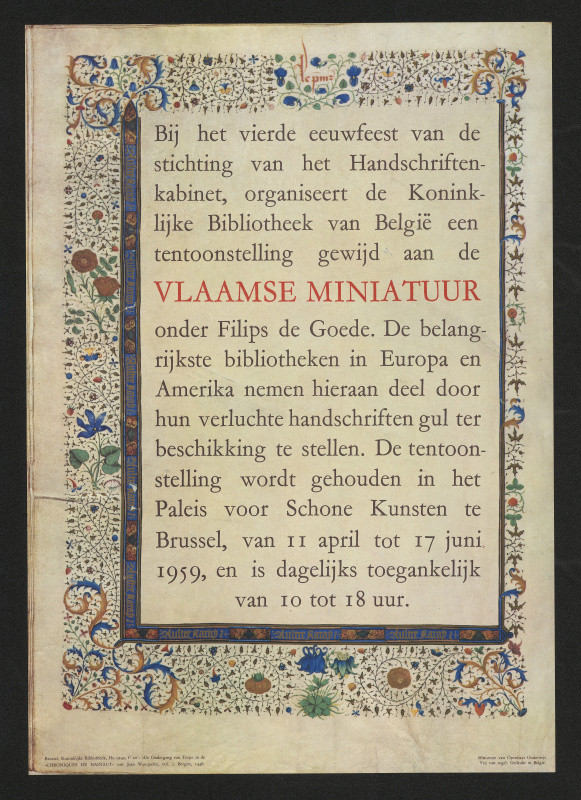 Bij het vierde eeuwfeest van de
stichting van het Handschriften-
kabinet, organiseert de Konink-
lijke Bibliotheek van België een
tentoonstelling gewijd aan de
VLAAMSE MINIATUUR
onder Filips de Goede. De belang-
rijkste bibliotheken in Europa en
Amerika nemen hieraan deel door
hun verluchte handschriften gul ter
beschikking te stellen. De tentoon-
stelling wordt gehouden in het
Paleis voor Schone Kunsten te
Brussel, van 11 april tot 17 juni
1959, en is dagelijks toegankelijk
van 10 tot 18 uur.
Brussel, Koninklijke Bibliotheek, Hs.
«CHRONIQUES DE HAINAUT» van Jean Wauquelin, vol. I. Bergen, 1446
Ministerie van Openbaar Onderwijs